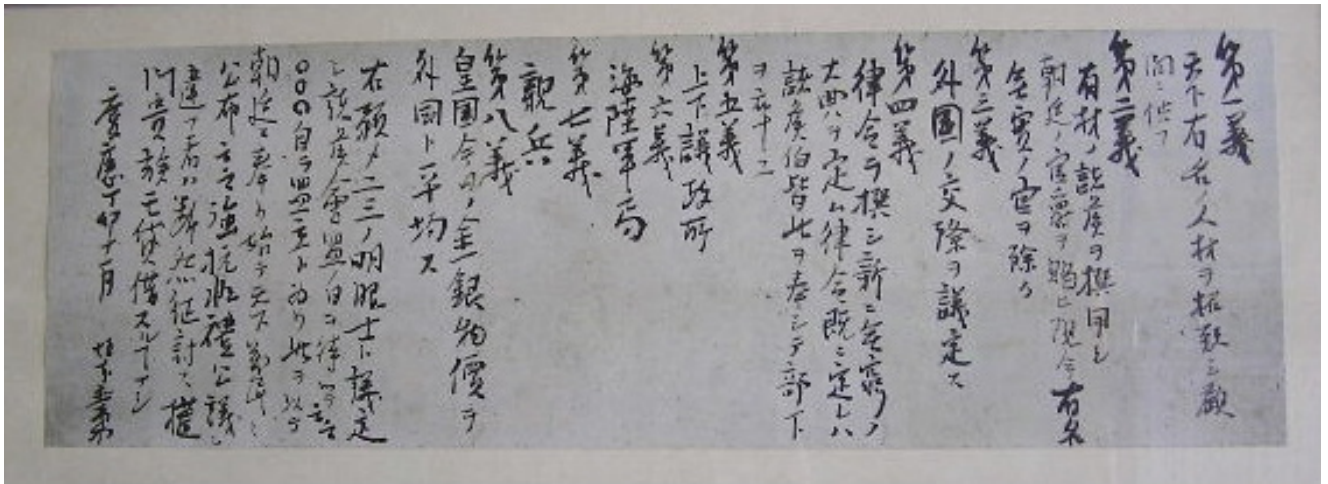 第一義
天下有名ノ人材ヲ招致シ顧
問ニ供フ
第二義
有材ノ諸侯ヲ撰用シ
朝廷ノ官爵ヲ賜ヒ現今有名
無實ノ官ヲ除ク
第三義
外國ノ交際ヲ議定ス
第四義
律令ヲ撰シ新ニ無窮ノ
大典ヲ定ム律令既ニ定レハ
諸侯伯皆此ヲ奉シテ部下
ヲ
第五義
上下議政所
第六義
海陸軍局
第七義
親兵
第八義
皇國今日ノ金銀物價ヲ
外国ト平均ス
右預メ二三ノ明眼士ト議定
シ諸侯會盟ノ日ヲ待ツテ云云
○○○自ラ盟主ト為リ此ヲ以テ
朝廷ニ奉リ始テ天下萬民ニ
公布云云強抗非礼公議ニ
違フ者ハ断然征討ス権
門貴族モ貸借スルヿナシ
慶應丁卯十一月 坂本直柔